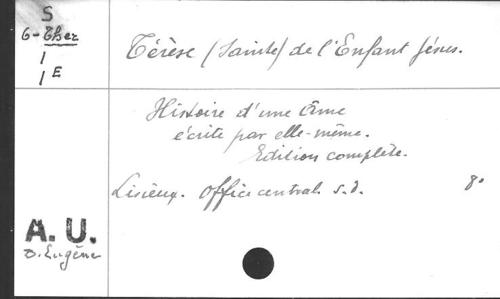 S
6-Ther
1
1E
Térèse (Sainte) de l'Enfant Jésus.
Histoire d'une Âme
écrite par elle-même.
Edition complète.
Lisieux. Office central s.d. 8°
A.U.
D. Eugène